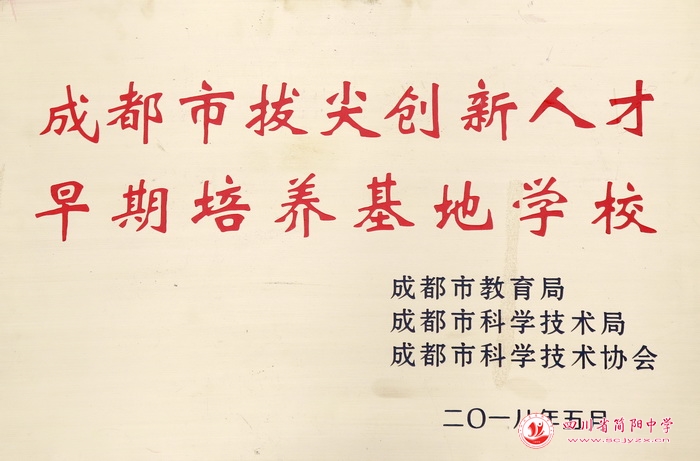 成都市拔尖创新人才
早期培养基地学校
成都市教育局
成都市科学技术局
成都市科学技术协会
二〇一八年五月
四川省简阳中学
www.scjyzx.cn